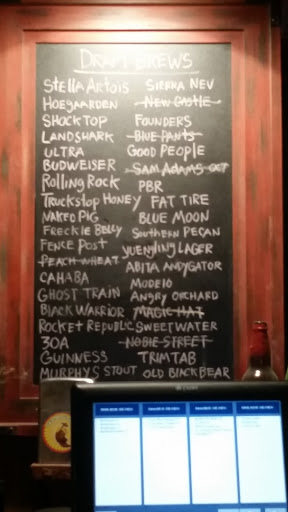 DRAFT BREWS
Stella Artois SIERRA NEV
HOEGAARDEN NEW CASTLE
SHOCKTOP FOUNDERS
LANDSHARK BLUE PANTS
ULTRA GOOD PEOPLE
BUDWEISER SAM ADAMS OCT
Rolling Rock PBR
Truckstop HONEY FAT TIRE
NAKED PIG BLUE MOON
FReckle BELLY SOUTHERN PECAN
FENCE POST YUENGLING LAGER
PEACH WHEAT ABITA ANDYGATOR
CAHABA MODELO
GHOST TRAIN ANGRY ORCHARD
BLACK WARRIOR MAGIC HAT
ROCKET REPUBLIC SWEETWATER
30A NOBLE STREET
GUINNESS TRIMTAB
MURPHYS STOUT OLD BLACK BEAR